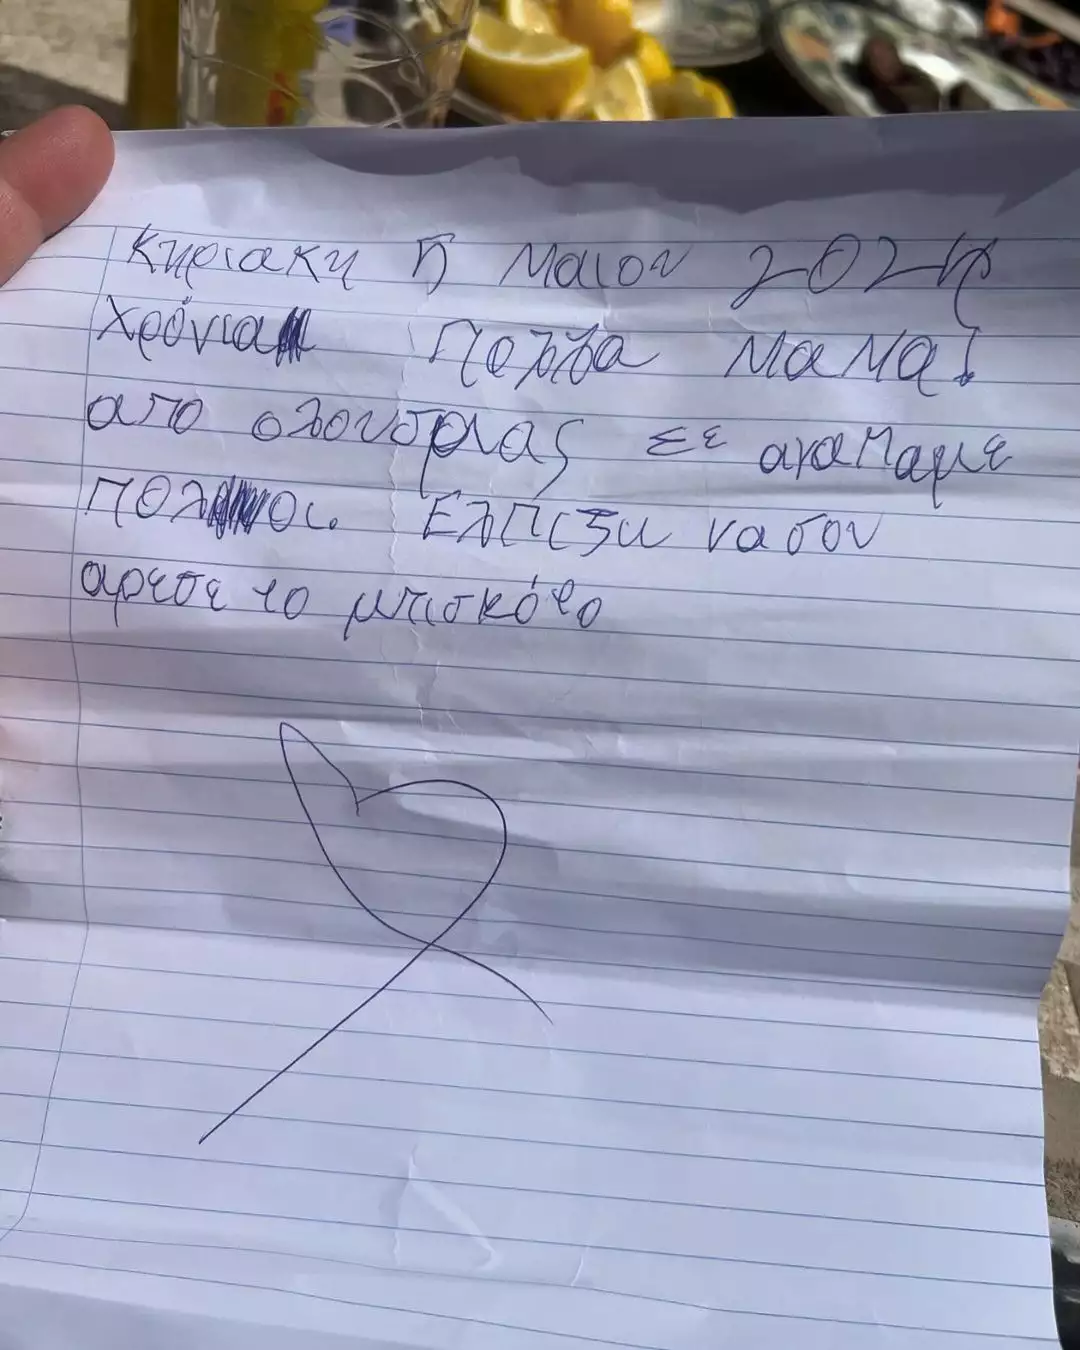 Κηριακη 5 Μαιου 2024
Χρόνια Πολλα Μαμα!
απο ολουσμας Σε αγαπαμε
πολ οι. Ελπιζω να σου
αρεσε το μπισκότο